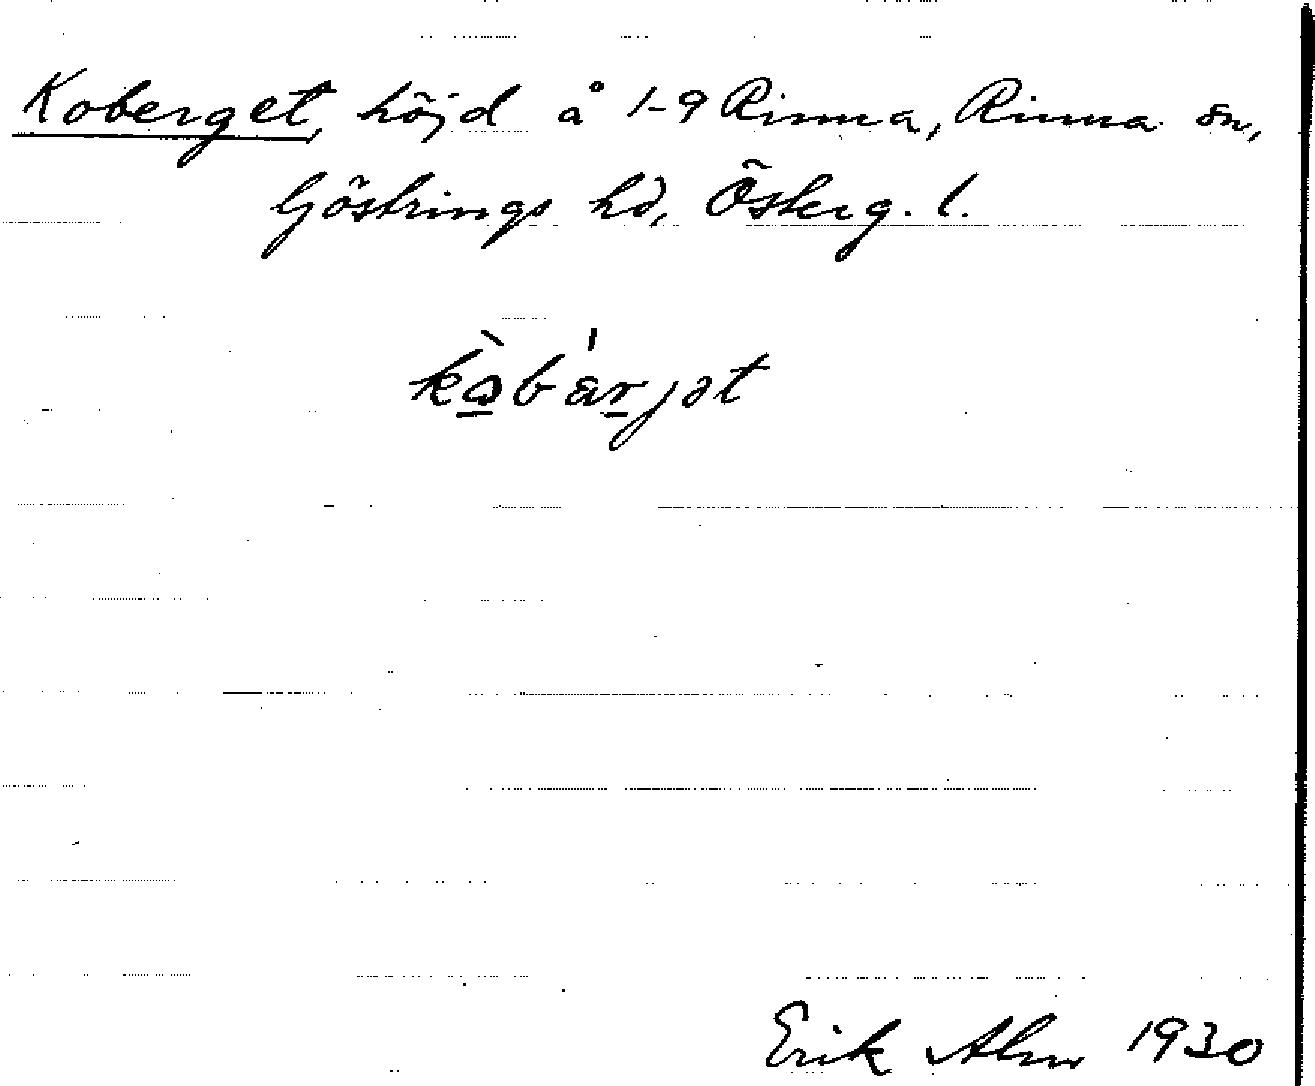 Koberget, höjd å 1-9 Rinna, Rinna sn,
Göstrings hd, Österg. l.
kòbärjət
Erik Alm 1930